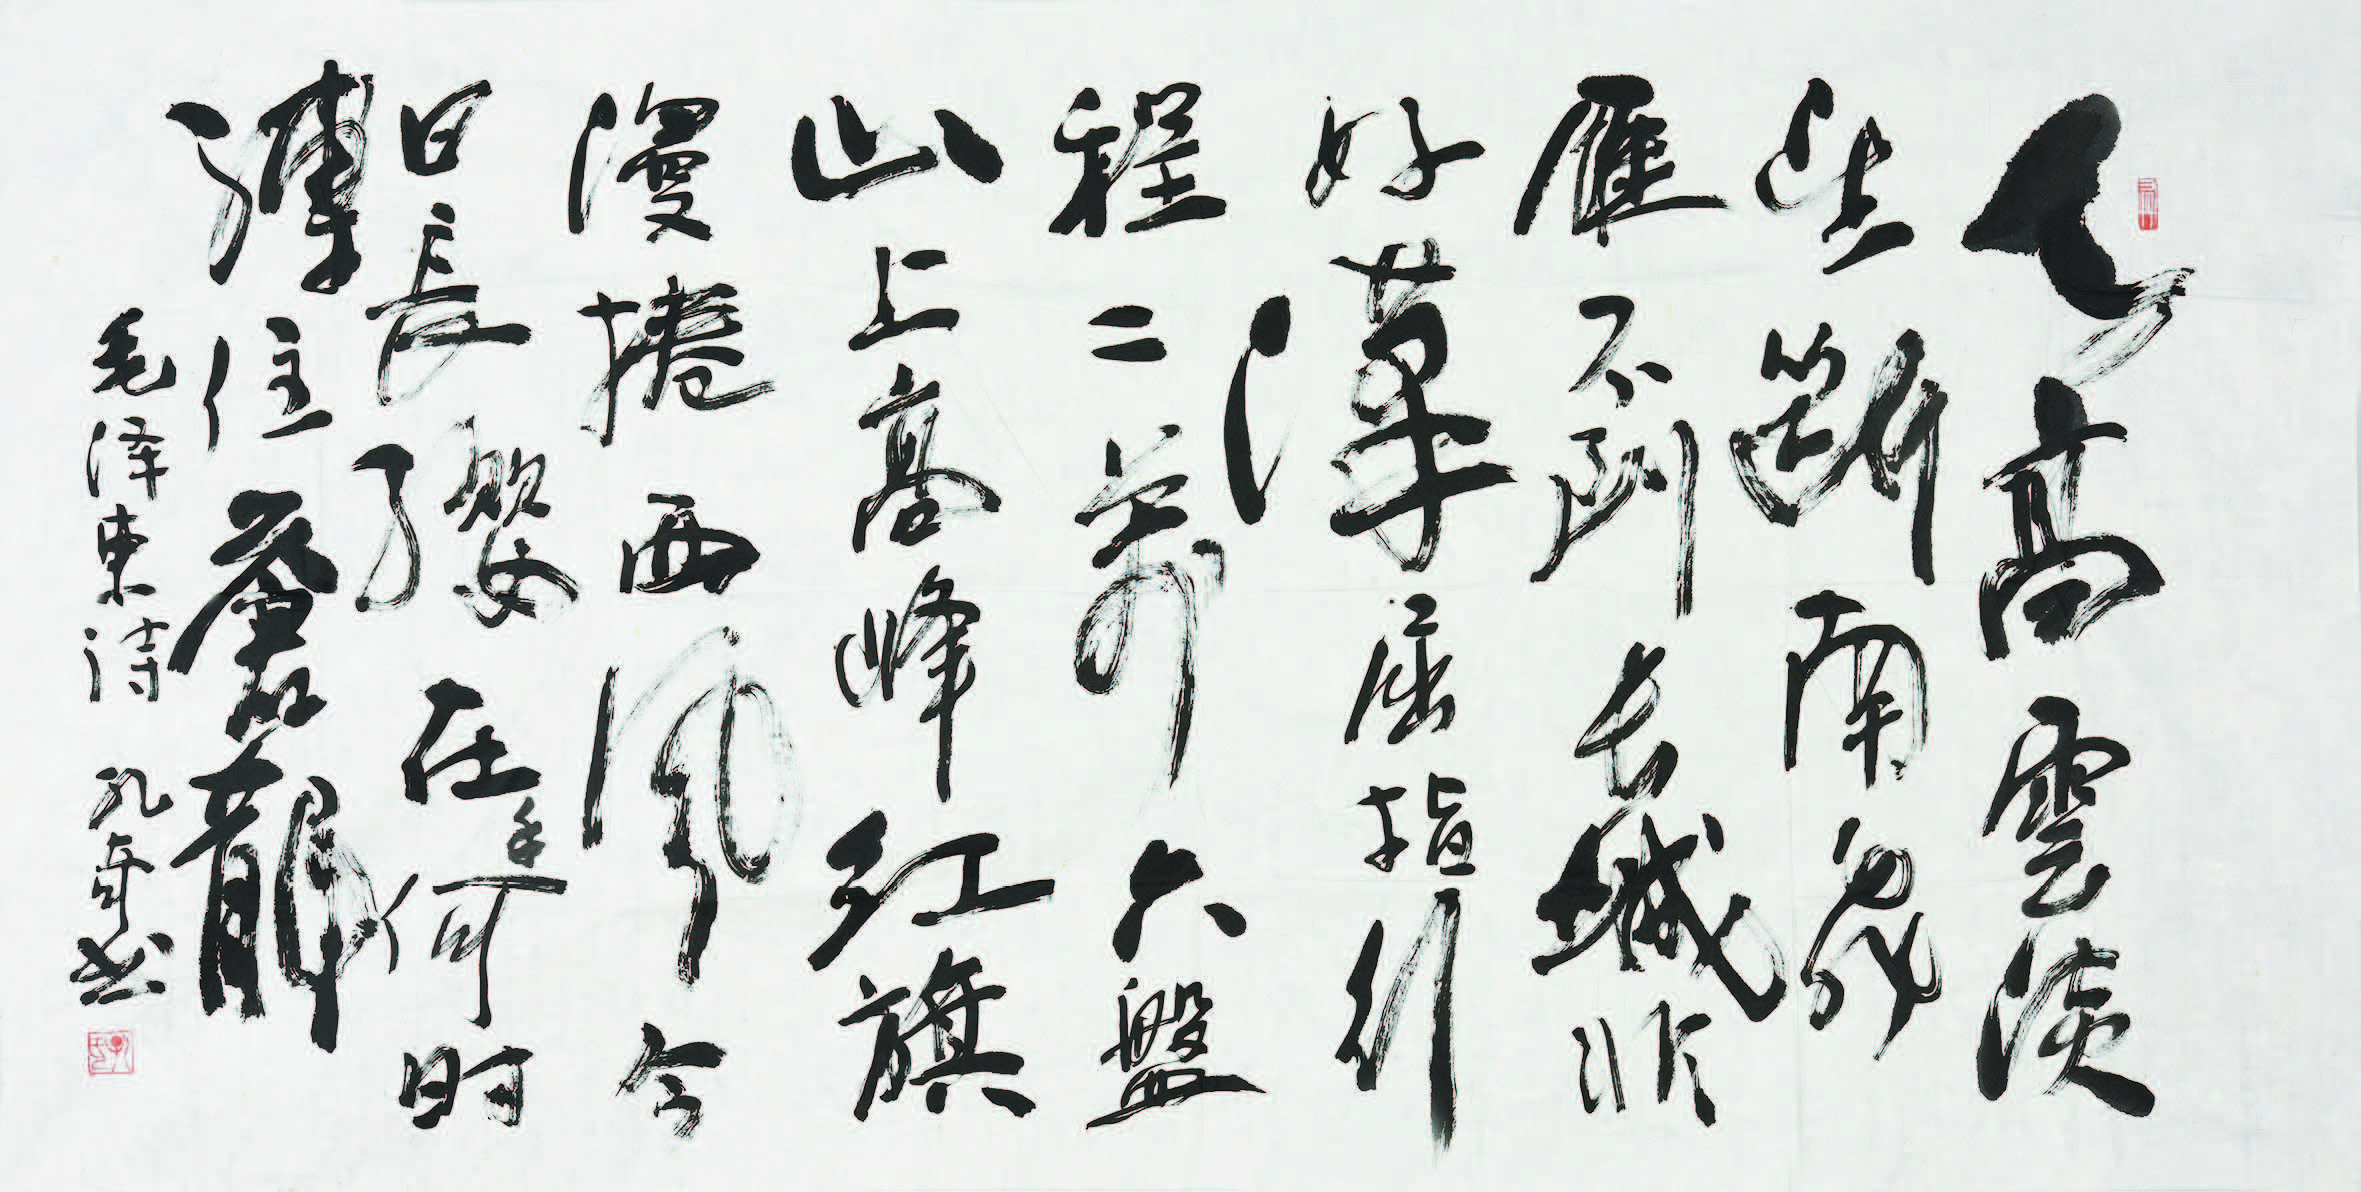 天高雲淡
望斷南飛
雁不到长城非
好漢屈指行
程二萬六盤
山上高峰红旗
漫捲西風今
日長纓在手何時
縛住蒼龍
毛泽東诗 书